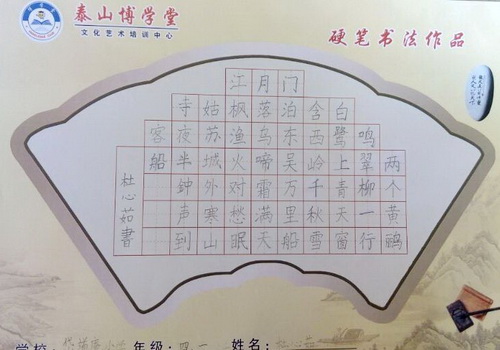 泰山博学堂
文化艺术培训中心
硬笔书法作品
两个黄鹂
鸣翠柳一行
白鹭上青天窗
含西岭千秋雪
门泊东吴万里船
月落乌啼霜满天
江枫渔火对愁眠
姑苏城外寒山
寺夜半钟声到
客船
杜心茹書
学校: 年级:四一 姓名: